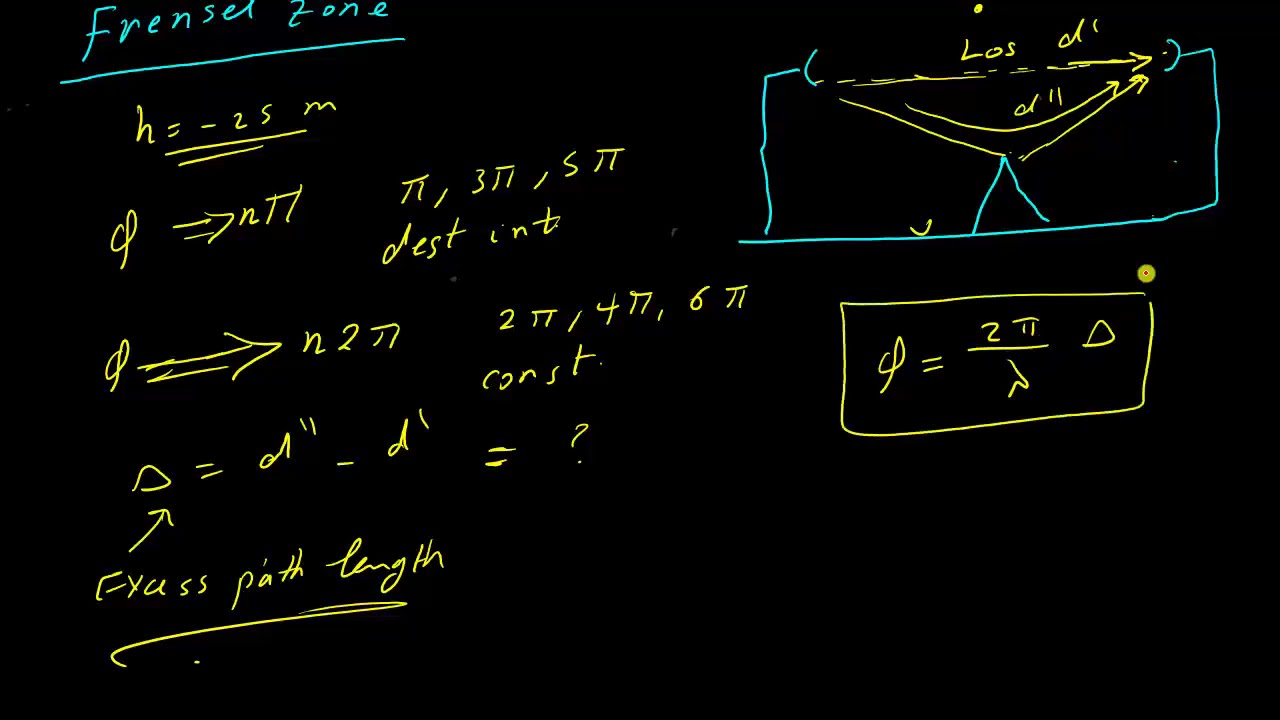 Frensel Zone
h = -25 m
φ ⇒ nπ
π, 3π, 5π
dest int.
φ ⇒ n2π
2π, 4π, 6π
const.
Δ = d'' - d' = ?
Excess path length
Los d'
d''
φ = 2π/λ Δ